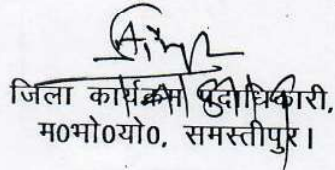 जिला कार्यक्रम पदाधिकारी,
म0भो0यो0, समस्तीपुर।